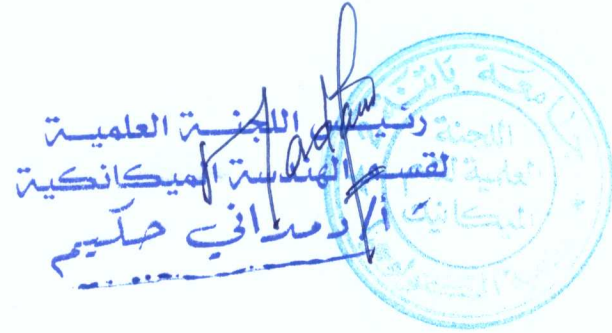 رئيس اللجنة العلمية
لقسم الهندسة الميكانكية
أ/د مداني حكيم
جامعة باتنة
اللجنة
العلمية
الميكانيك